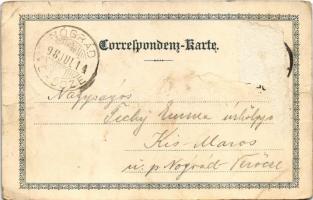 NÓGRÁD
98 JUL 14
Correspondenz-Karte.
Nagyságos
Tichy Emma úrhölgy
Kis-Maros
u. p Nógrád Verőcze